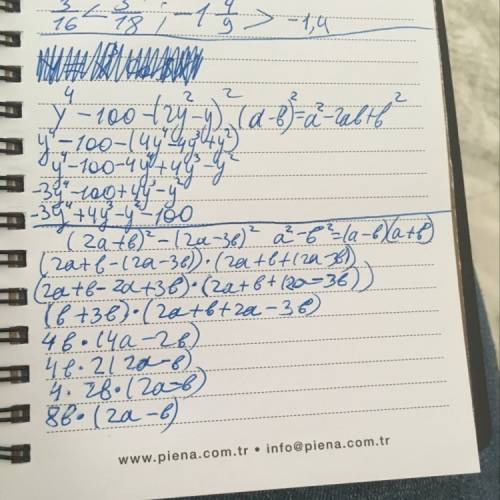 3/16 < 3/18 ; -1 4/9 > -1,4
y⁴-100-(2y²-y)² (a-в)²=a²-2aв+в²
y⁴-100-(4y⁴-4y³+y²)
y⁴-100-4y⁴+4y³-y²
-3y⁴-100+4y³-y²
-3y⁴+4y³-y²-100
(2a+в)²-(2a-3в)² a²-в²-(a-в)(a+в)
(2a+в-(2a-3в))·(2a+в+(2a-3в))
(2a+в-2a+3в)·(2a+в+(2a-3в))
(в+3в)·(2a+в+2a-3в)
4в·(4a-2в)
4в·2(2a-в)
4·2в·(2a-в)
8в·(2a-в)
www.piena.com.tr • info@piena.com.tr